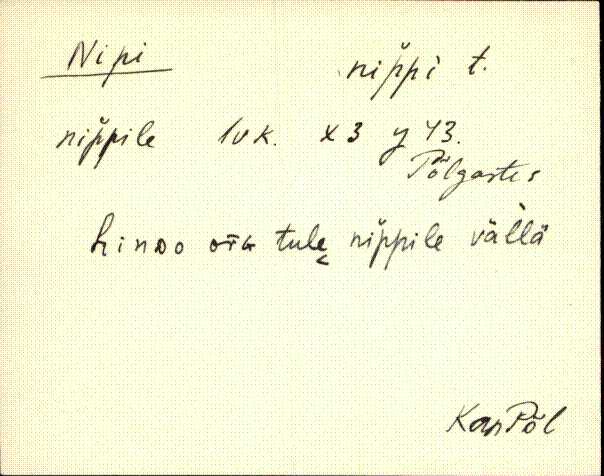 Nipi nip̆pi t.
nip̆pile 1vk. x3 y43.
Põlgastes
tule̬ nip̆pile vällä
KanPõl